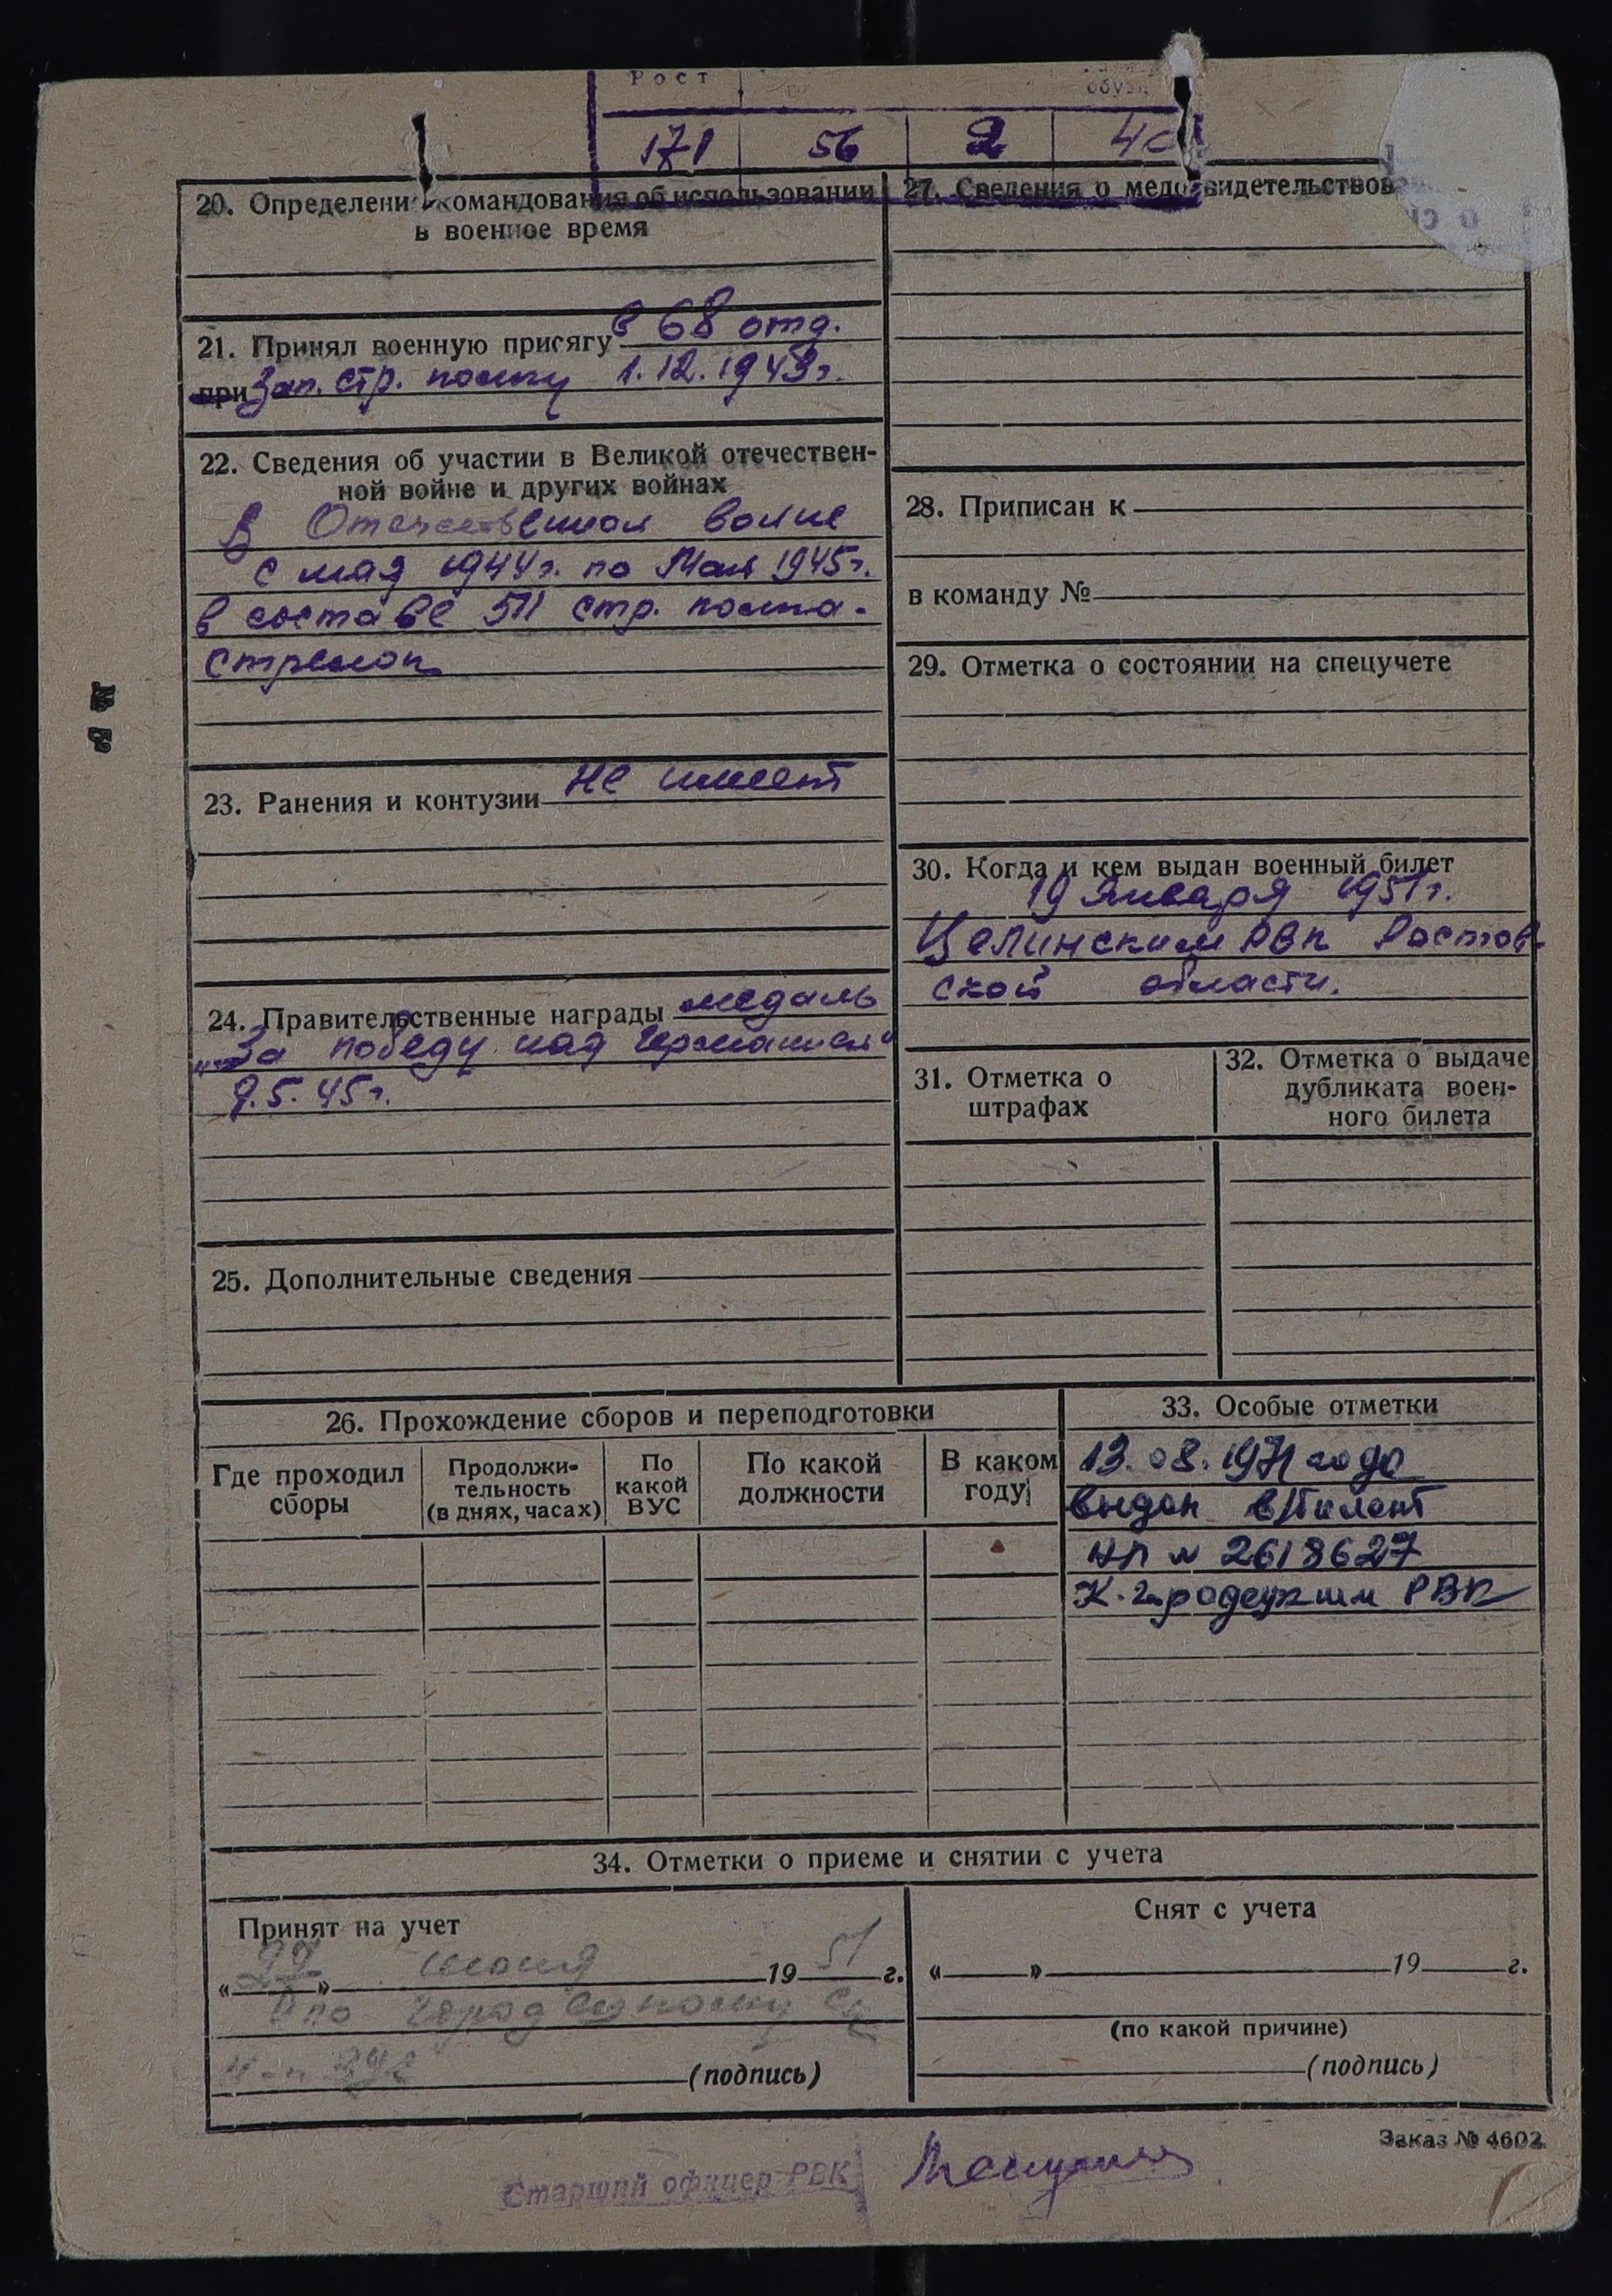 Рост
обуви
171 56 2 40
20. Определени командования об использовании
в военное время
21. Принял военную присягу в 68 отд.
при зап. стр. полку 1.12.1943 г.
22. Сведения об участии в Великой отечествен-
ной войне и других войнах
В Отечественной войне
с мая 1944 г. по Май 1945 г.
в составе 511 стр. полка.
стрелок
23. Ранения и контузии не имеет
24. Правительственные награды медаль
„За победу над Германией“
9.5.45 г.
25. Дополнительные сведения
26. Прохождение сборов и переподготовки
Где проходил
сборы
Продолжи-
тельность
(в днях, часах)
По
какой
ВУС
По какой
должности
В каком
году
27. Сведения о медосвидетельствов
28. Приписан к
в команду №
29. Отметка о состоянии на спецучете
30. Когда и кем выдан военный билет
19 января 1951 г.
Целинским РВК Ростов-
ской области.
31. Отметка о
штрафах
32. Отметка о выдаче
дубликата воен-
ного билета
33. Особые отметки
13.08.1971 года
выдан в/билет
НП № 2618627
К. городецким РВК
34. Отметки о приеме и снятии с учета
Принят на учет
« » 19 51 г.
(подпись)
Снят с учета
« » 19 г.
(по какой причине)
(подпись)
Заказ № 4602
Старший офицер РВК